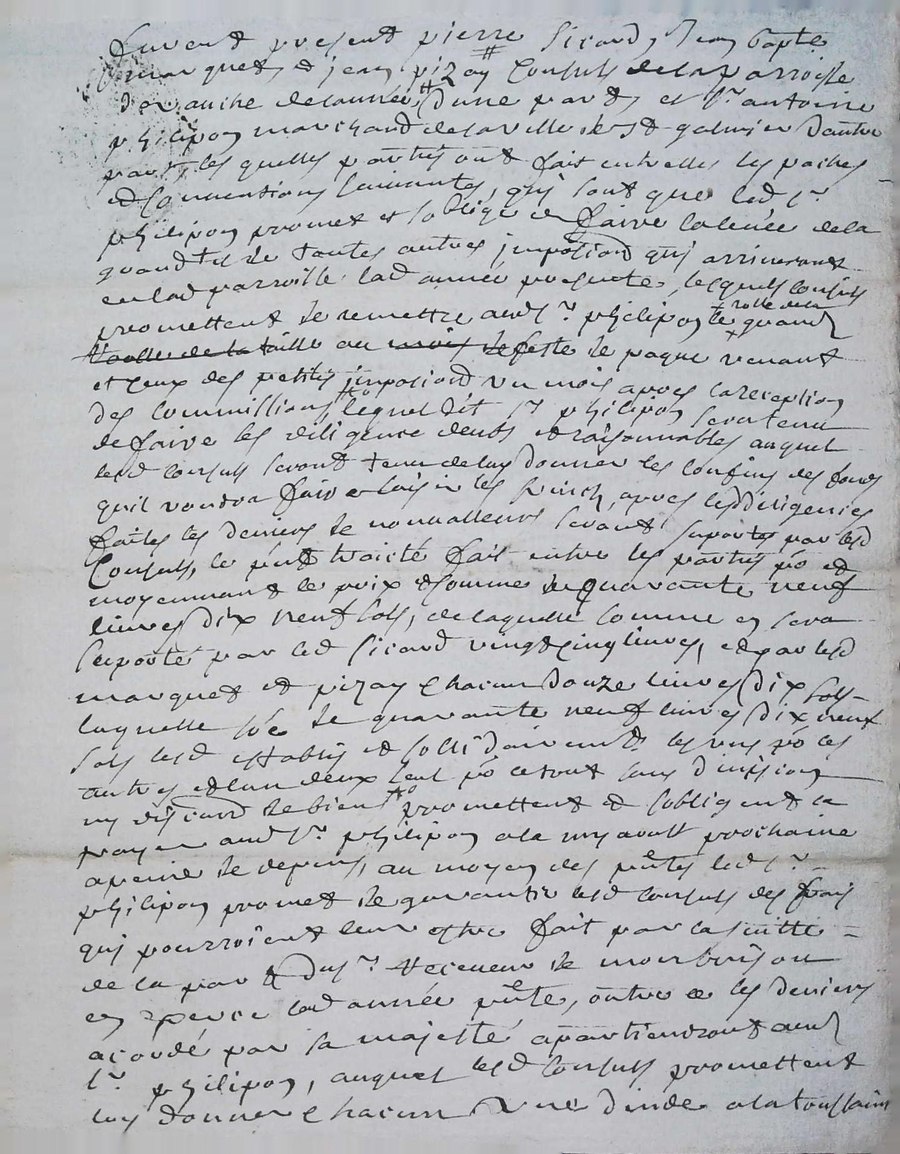 furent present pierre sicard, Jean bapte
marquet, & jean pizay Consuls de la parroisse
de laurée d'une part, et Sr antoine
philipon marchand de la ville de St galmier d'autre
part, les quelles parties ont fait entrelles les paches
et Conventions suivantes, quy sont que led Sr
philipon promet et soblige de faire la levée de la
quand te de toutes autres jmposiond quy arriveront
en lad parroisse lad année presente, lesquels Consuls
promettent de remettre aud Sr philipon le rolle de la quand
Roolle de la taille au mois de feste de paque venant
et Ceux des petits jmposiond un mois apres la reception
des Commissions, lequel dit Sr philipon sera tenu
de faire les diligence deues et raisonnables auquel
lesd Consuls seront tenu de luy donner les Confins des fonds
quil voudra faire saisir les fruich, apres lesd diligences
faites les deniers de nonvalleurs seront suportés par lesd
Consuls, le pnt traicté fait entre les parties pô et
moyennant le prix & somme de quarante neuf
livres dix neuf sols, de laquelle somme en sera
suporté par led Sicard vingt cinq livres, et par lesd
marquet et pizay chacun douze livres dix sols
laquelle sôe de quarante neuf livres dix neuf
sols lesd establis et sollidairement les uns pô les
autres et lun deux seul pô le tout sans division
ny discution de bien promettent et sobligent de
payer aud Sr philipon a la my aoust prochaine
a peine de depens, au moyen des pñtes led Sr
philipon promet de garantir lesd Consuls des frais
quy pourroient leur estre fait par la suitte
de la part du Sr Receveur de montbrison
en exerce lad année pñte, outre ce les deniers
acordé par sa majesté apartiendront aud
Sr philipon, auquel lesd Consuls promettent
luy donner chacun Une dinde a la toussaint